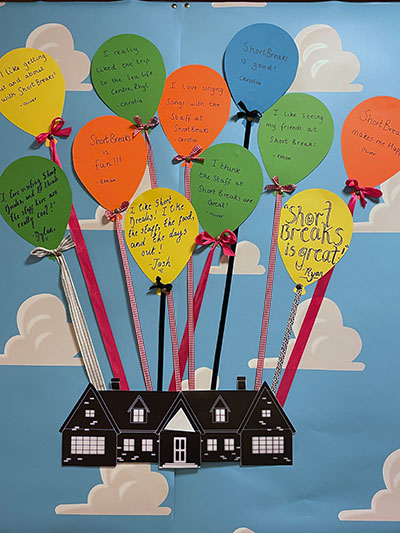 I like getting
out and about
with Short Breaks!
- Oliver
I really
liked the trip
to the Sea life
Centre, Rhyl
- Christia
I love singing
Songs with the
Staff at
Short Breaks
Short Breaks
is good!
- Christia
I like seeing
my friends at
Short Breaks!
Short Breaks
makes me Happy
- Oliver
Short Breaks is
fun!!!
I love visiting Short
Breaks
the staff here are
really cool!"
Dylan
I like Short
Breaks! I like
the staff, the food,
and the days
out!
- Josh
I think the
Staff at Short
Breaks are
Great!
- Oliver
"Short
Breaks
is great!"
- Ryan